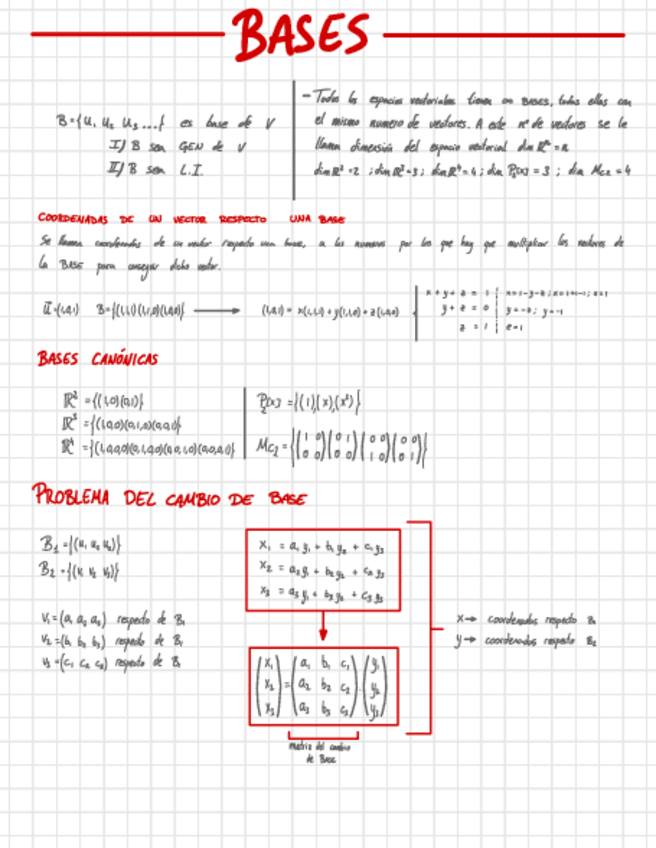 BASES
B={u₁ u₂ u₃ ...} es base de V
I/ B sea GEN de V
II/ B sea L.I.
- Todos los espacios vectoriales tienen BASES, todas ellas con
el mismo numero de vectores. A este nº de vectores se le
llama dimensión del espacio vectorial dim ℝⁿ=n
dim ℝ²=2 ; dim ℝ³=3 ; dim ℝ⁴=4 ; dim P₂(x) = 3 ; dim Mc₂ = 4
COORDENADAS DE UN VECTOR RESPECTO UNA BASE
Se llama coordenadas de un vector respecto una base, a los numeros por los que hay que multiplicar los vectores de
la BASE para conseguir dicho vector.
ū=(1,0,1) B={(1,1,1)(1,1,0)(1,0,0)} → (1,0,1) = x(1,1,1) + y(1,1,0) + z(1,0,0)
x + y + z = 1
y + z = 0
z = 1
BASES CANÓNICAS
ℝ² = {(1,0)(0,1)}
ℝ³ = {(1,0,0)(0,1,0)(0,0,1)}
ℝ⁴ = {(1,0,0,0)(0,1,0,0)(0,0,1,0)(0,0,0,1)}
P₂(x) = {(1)(x)(x²)}
Mc₂ = {(1 0 / 0 0)(0 1 / 0 0)(0 0 / 1 0)(0 0 / 0 1)}
PROBLEMA DEL CAMBIO DE BASE
B₁ = {(u₁ u₂ u₃)}
B₂ = {(v₁ v₂ v₃)}
v₁ = (a₁ a₂ a₃) respecto de B₁
v₂ = (b₁ b₂ b₃) respecto de B₁
v₃ = (c₁ c₂ c₃) respecto de B₁
x₁ = a₁y₁ + b₁y₂ + c₁y₃
x₂ = a₂y₁ + b₂y₂ + c₂y₃
x₃ = a₃y₁ + b₃y₂ + c₃y₃
(x₁ / x₂ / x₃) = (a₁ b₁ c₁ / a₂ b₂ c₂ / a₃ b₃ c₃) · (y₁ / y₂ / y₃)
matriz del cambio
de Base
x → coordenadas respecto B₁
y → coordenadas respecto B₂